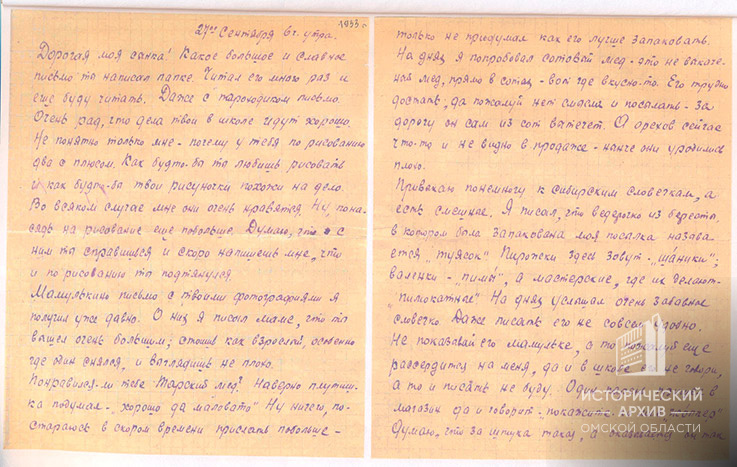 1933 г.
27го Сентября 6 г. утра.
Дорогая моя сынка! Какое большое и славное
письмо ты написал папке. Читал его много раз и
еще буду читать. Даже с пароходиком письмо.
Очень рад, что дела твои в школе идут хорошо.
Не понятно только мне - почему у тебя по рисованию
два с плюсом. Как будто-бы ты любишь рисовать
и как будто-бы твои рисуночки похожи на дело.
Во всяком случае мне они очень нравятся. Ну, пона-
сядь на рисование еще побольше. Думаю, что и с
ним ты справишься и скоро напишешь мне, что
и по рисованию ты подтянулся.
Мамулькино письмо с твоими фотографиями я
получил уже давно. О них я писал маме, что ты
вышел очень большим; стоишь как взрослый, особенно
где один снялся, и выглядишь не плохо.
Понравился-ли тебе Тарский мед? Наверно плутиш-
ка подумал - "хорошо да маловато" Ну ничего, по-
стараюсь в скором времени прислать побольше -
только не придумал как его лучше запаковать.
На днях я попробовал сотовый мед - это не выкаче-
ный мед, прямо в сотах - вот где вкусно-то. Его трудно
достать, да пожалуй нет смысла и посылать - за
дорогу он сам из сот вытечет. А орехов сейчас
что-то и не видно в продаже - нынче они уродились
плохо.
Привыкаю понемногу к сибирским словечкам, а
есть смешные. Я писал, что ведерочко из бересты,
в котором была запакована моя посылка называ-
ется "туясок" Пирожки здесь зовут - "шаньги";
валенки - "пимы", а мастерские, где их делают -
"пимокатные" На днях услышал очень забавное
словечко. Даже писать его не совсем удобно.
Не показывай его мамульке, а то пожалуй еще
рассердится на меня, да и в школе его не говори,
а то и писать не буду. Один
магазин да и говорит - "покажи
Думаю, что за штука такая, а оказывается он так
ИСТОРИЧЕСКИЙ
АРХИВ
ОМСКОЙ ОБЛАСТИ